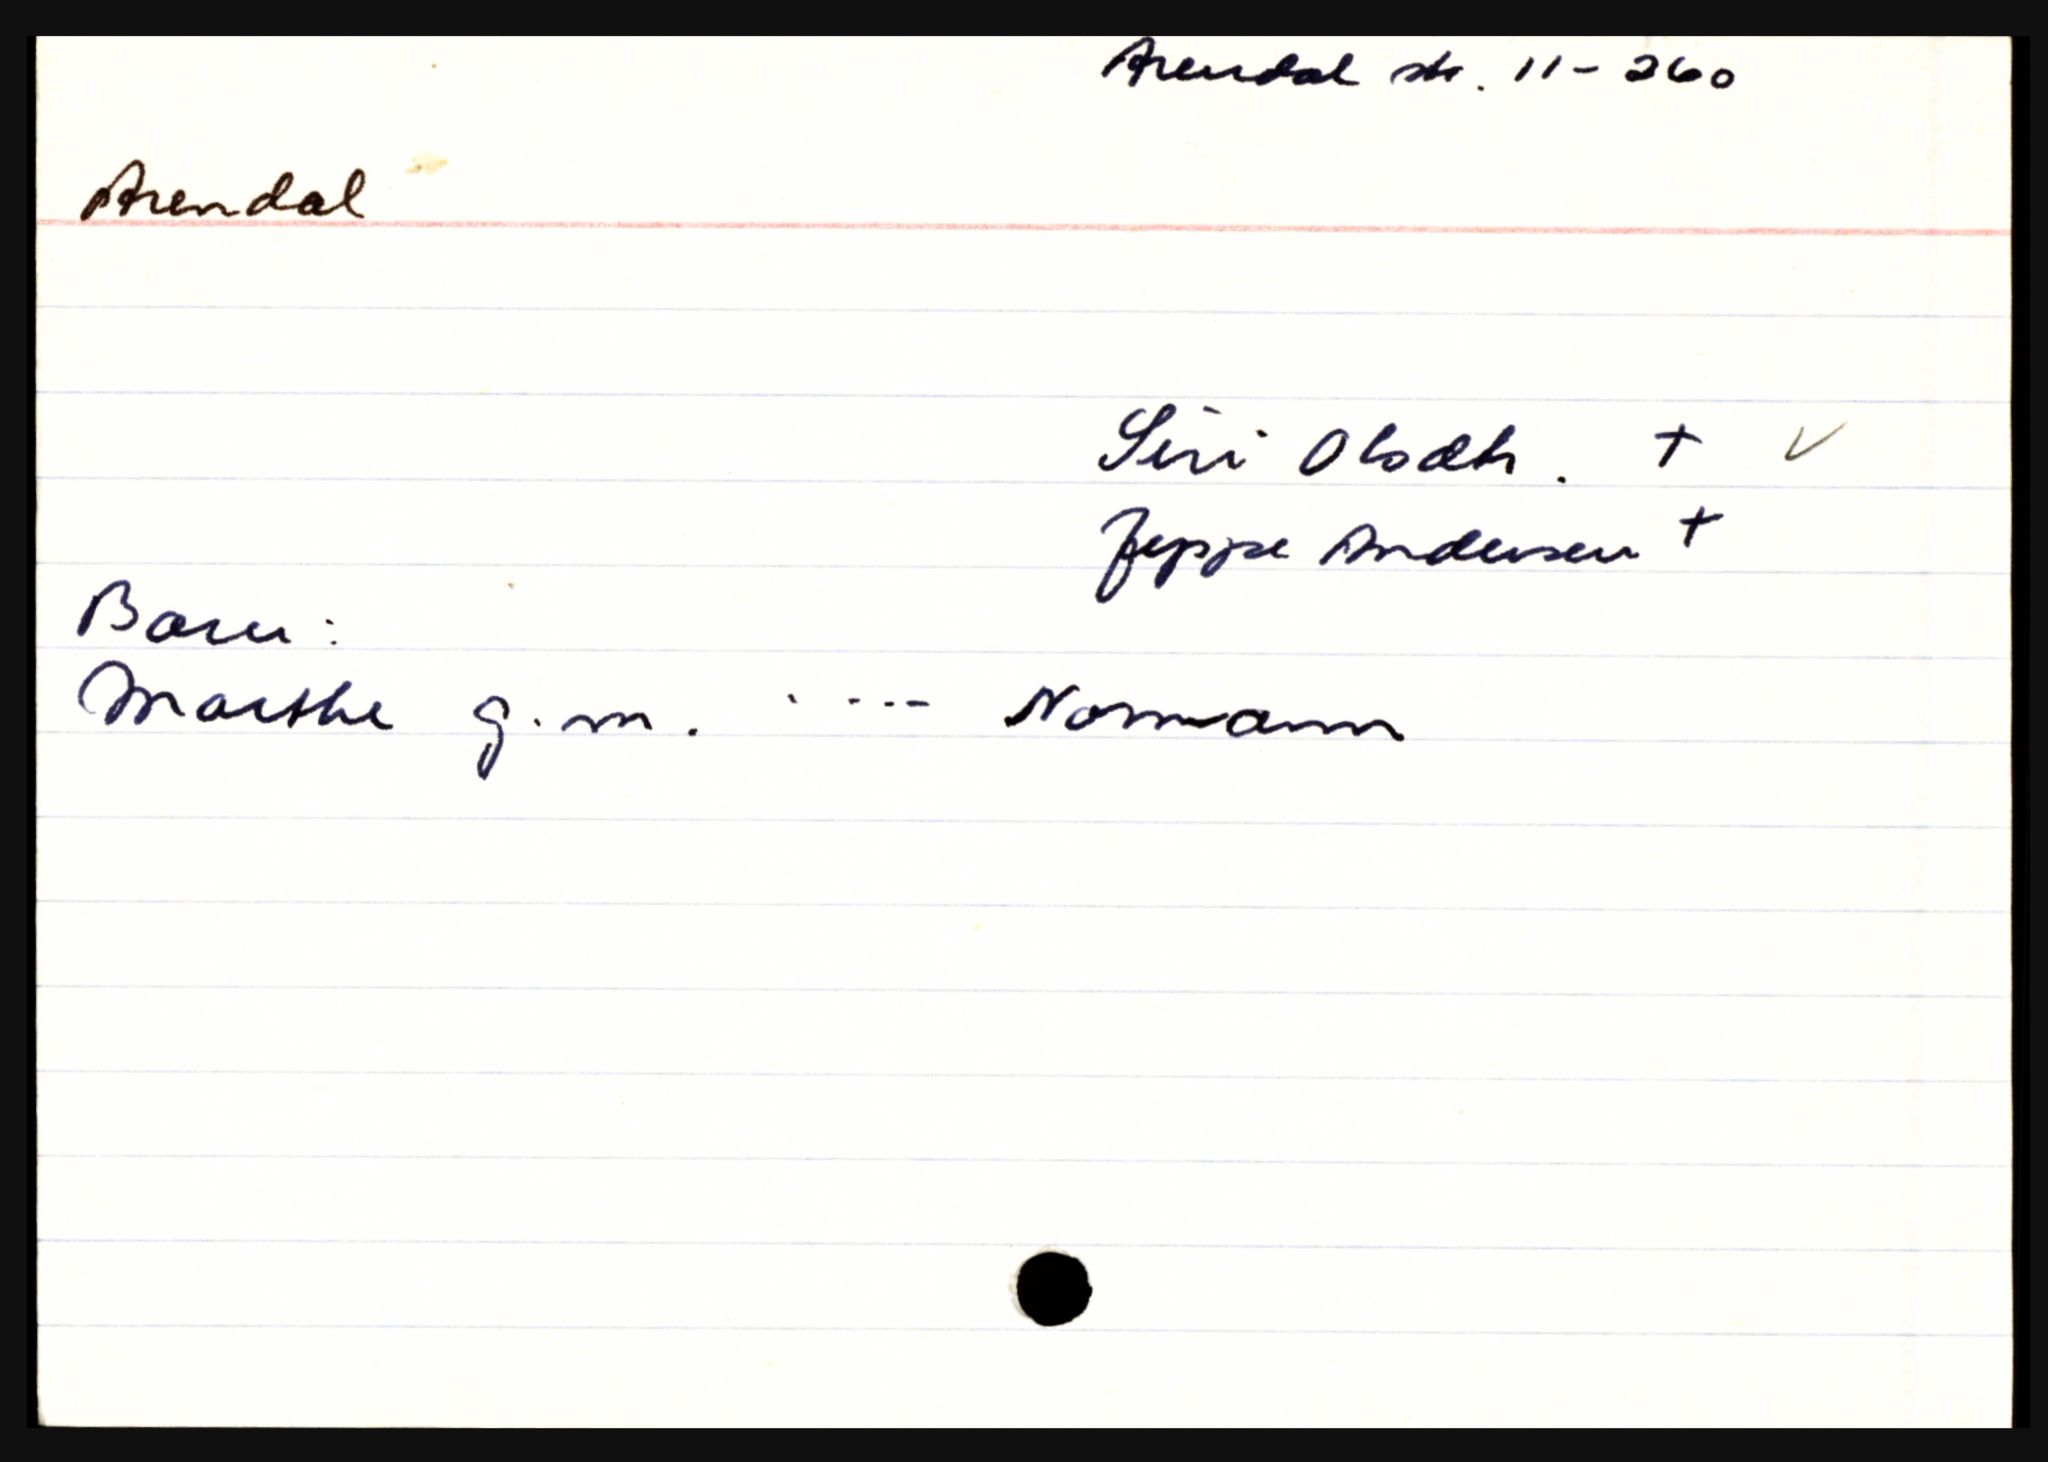 Arendal sk. 11-260
Arendal
Siri Olsdtr. + ✓
Jeppe Andersen +
Barn:
Marthe g.m. ---- Normann